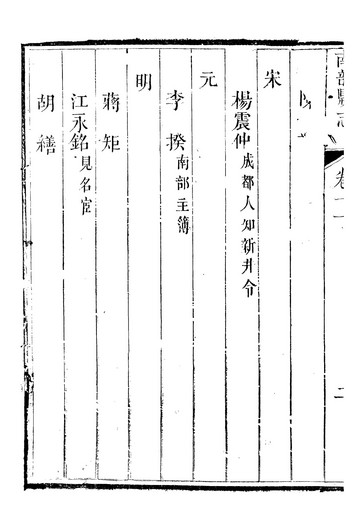 南部縣志
卷十
二
宋
楊震仲成都人知新井令
元
李揆南部主簿
明
蔣矩
江永銘見名宦
胡繕